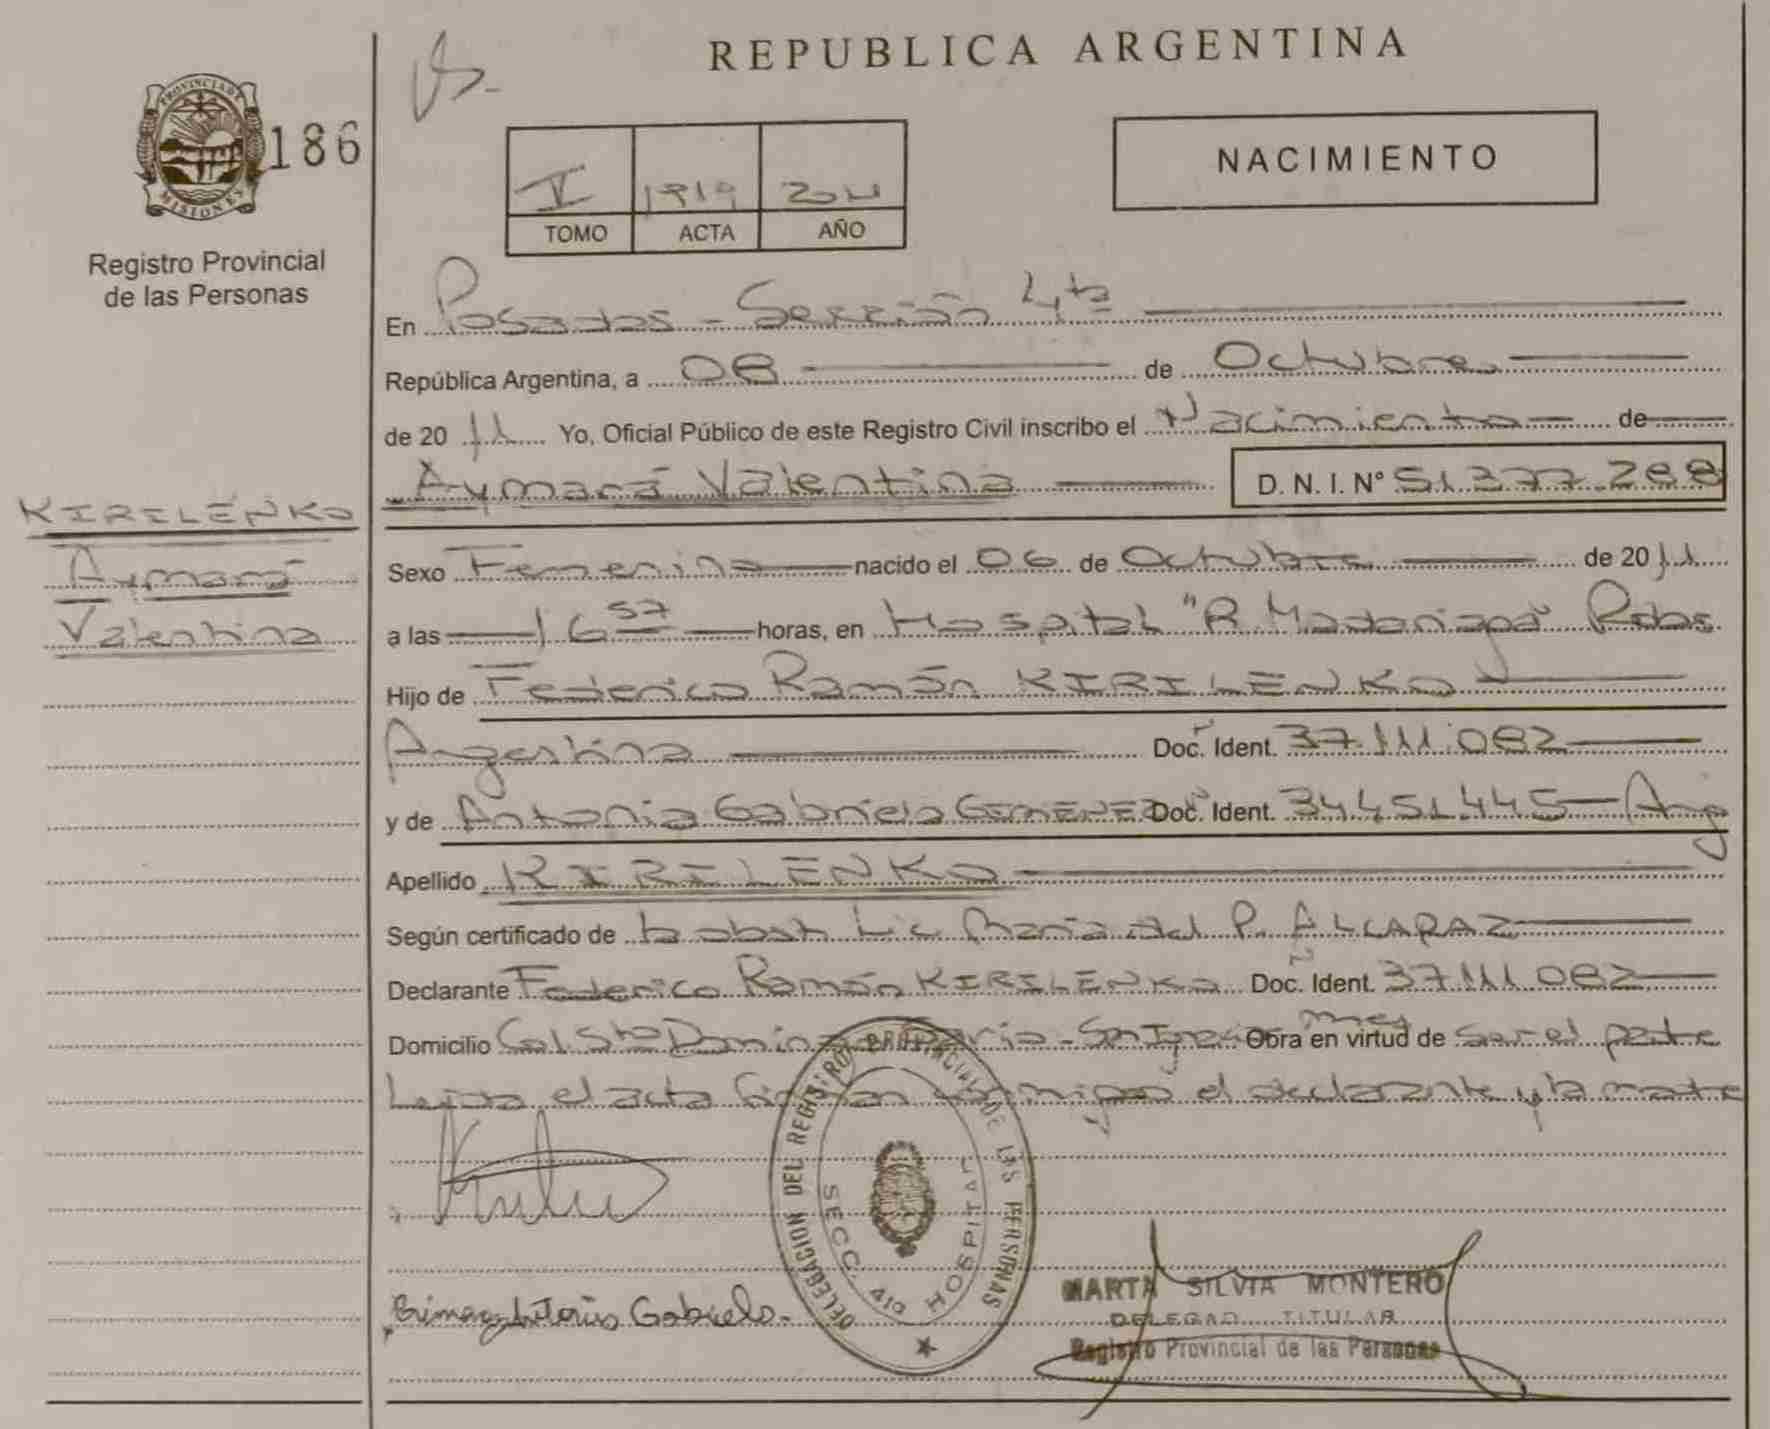 REPUBLICA ARGENTINA
PROVINCIA DE
MISIONES
186
Registro Provincial
de las Personas
V 1919 2011
TOMO ACTA AÑO
NACIMIENTO
En Posadas - Sección 4ta
República Argentina, a 08 de Octubre
de 2011 Yo, Oficial Público de este Registro Civil inscribo el Nacimiento de
Aymará Valentina D. N. I. Nº 51.377.288
KIRILENKO
Aymará
Valentina
Sexo Femenino nacido el 06 de Octubre de 2011
a las 16 57 horas, en Hospital "R. Madariaga" Pdas.
Hijo de Federico Ramón KIRILENKO
Argentina Doc. Ident. 37.111.082
y de Antonia Gabriela GIMENEZ Doc. Ident. 34.451.445 - Arg
Apellido KIRILENKO
Según certificado de la obst. Lic. María del P. ALCARAZ
Declarante Federico Ramón KIRILENKO Doc. Ident. 37.111.082
Domicilio Col. Sto Domingo - San Ignacio Mnes Obra en virtud de ser el padre
Leída el acta firman conmigo el declarante y la madre
DELEGACION DEL REGISTRO PROVINCIAL DE LAS PERSONAS
SECC. 4ta HOSPITAL
Gimenez Antonia Gabriela.
MARTA SILVIA MONTERO
DELEGAD TITULAR
Registro Provincial de las Personas